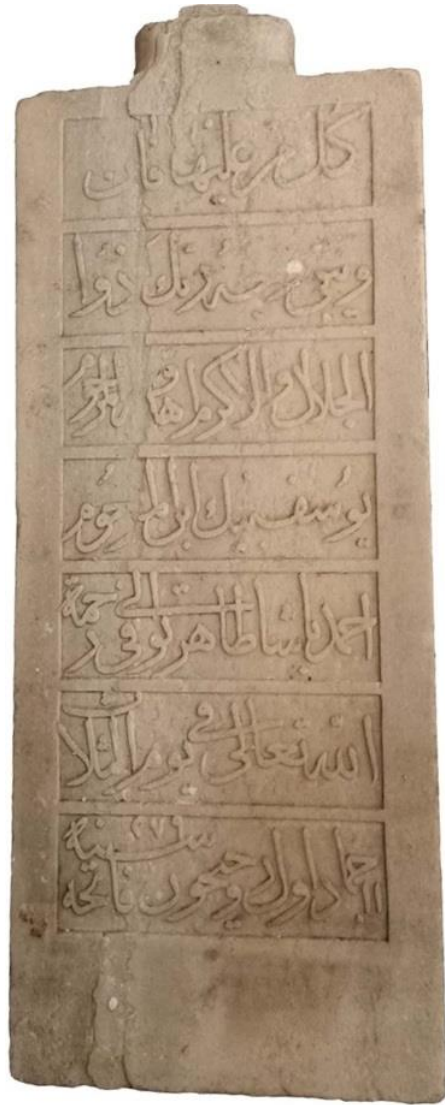 كل من عليها فان
ويبقى وجه ربك ذوا
الجلال والاكرام هاذا المرحوم
يوسف بيك ابن المرحوم
احمد باشا طاهر توفى الى رحمة
الله تعالى فى يوم الثلاث
جماد اول روحون فاتحه سنة